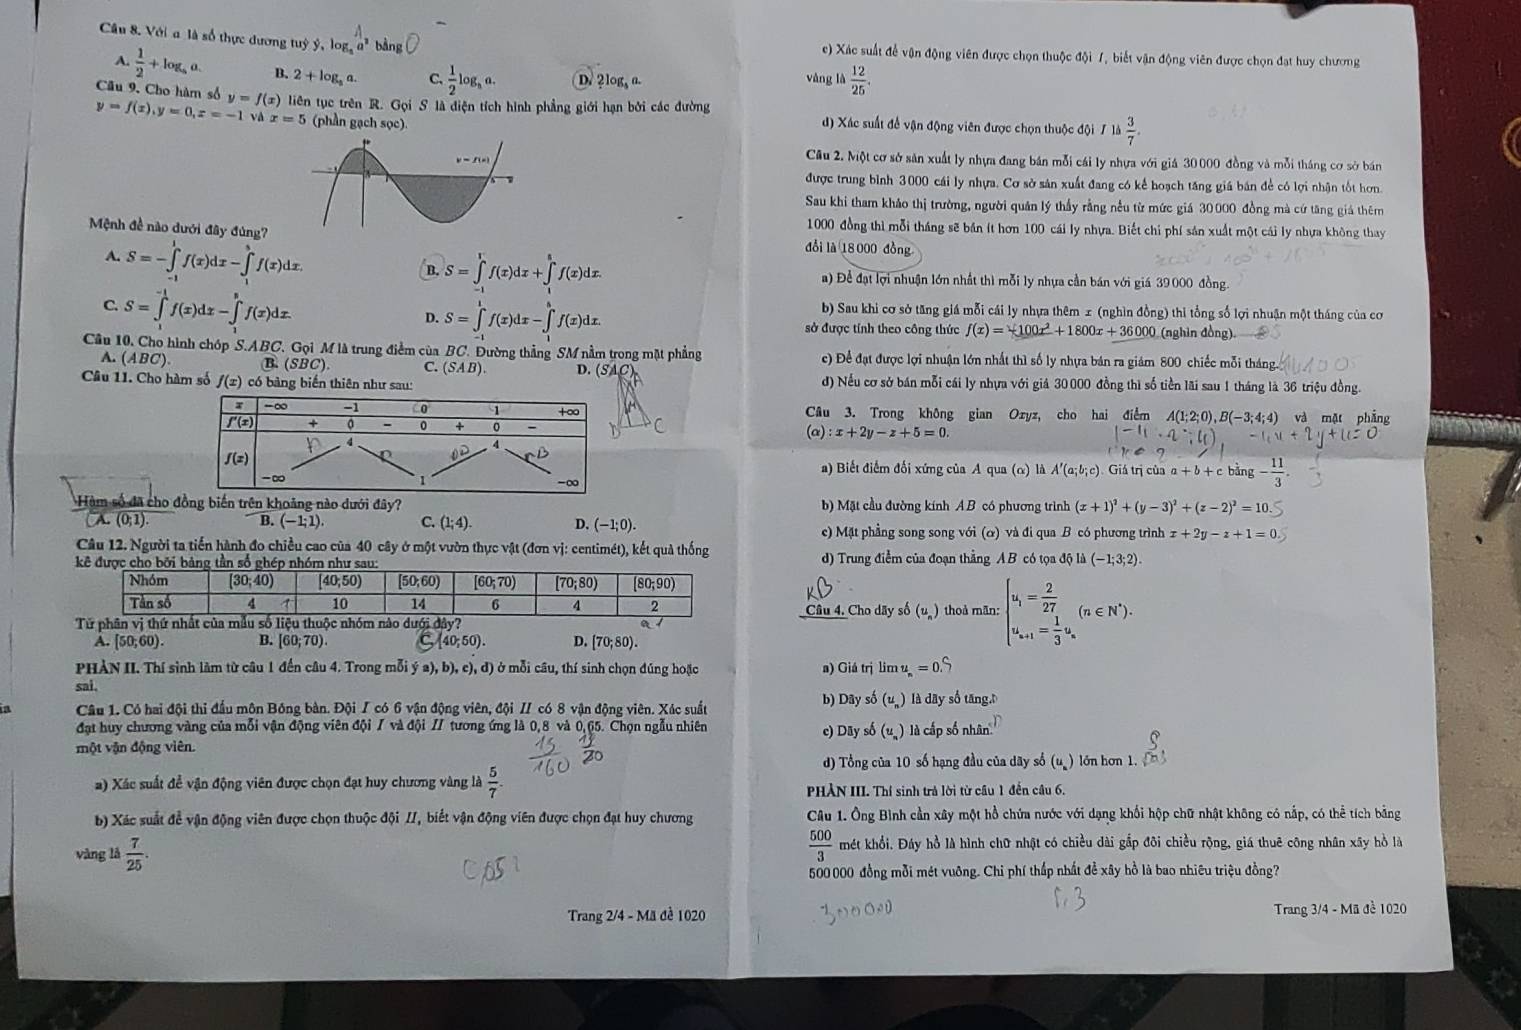 Câu 8. Với a là số thực dương tuỳ ý, log₅ a² bằng
A. 1/2 + log₅ a. B. 2 + log₅ a. C. 1/2 log₅ a. D. 2log₅ a.
Câu 9. Cho hàm số y = f(x) liên tục trên R. Gọi S là diện tích hình phẳng giới hạn bởi các đường
y = f(x), y = 0, x = -1 và x = 5 (phần gạch sọc).
y = f(x)
Mệnh đề nào dưới đây đúng?
A. S = -∫₋₁¹ f(x)dx - ∫₁⁵ f(x)dx. B. S = ∫₋₁¹ f(x)dx + ∫₁⁵ f(x)dx.
C. S = ∫₁⁻¹ f(x)dx - ∫₁⁵ f(x)dx. D. S = ∫₋₁¹ f(x)dx - ∫₁⁵ f(x)dx.
Câu 10. Cho hình chóp S.ABC. Gọi M là trung điểm của BC. Đường thẳng SM nằm trong mặt phẳng
A. (ABC). B. (SBC). C. (SAB). D. (SAC).
Câu 11. Cho hàm số f(x) có bảng biến thiên như sau:
x -∞ -1 0 1 +∞
f'(x) + 0 - 0 + 0 -
4 4
f(x)
-∞ 1 -∞
Hàm số đã cho đồng biến trên khoảng nào dưới đây?
A. (0;1). B. (-1;1). C. (1;4). D. (-1;0).
Câu 12. Người ta tiến hành đo chiều cao của 40 cây ở một vườn thực vật (đơn vị: centimét), kết quả thống
kê được cho bởi bảng tần số ghép nhóm như sau:
Nhóm [30;40) [40;50) [50;60) [60;70) [70;80) [80;90)
Tần số 4 10 14 6 4 2
Tứ phân vị thứ nhất của mẫu số liệu thuộc nhóm nào dưới đây?
A. [50;60). B. [60;70). C. [40;50). D. [70;80).
PHẦN II. Thí sinh làm từ câu 1 đến câu 4. Trong mỗi ý a), b), c), d) ở mỗi câu, thí sinh chọn đúng hoặc
sai.
Câu 1. Có hai đội thi đấu môn Bóng bàn. Đội I có 6 vận động viên, đội II có 8 vận động viên. Xác suất
đạt huy chương vàng của mỗi vận động viên đội I và đội II tương ứng là 0,8 và 0,65. Chọn ngẫu nhiên
một vận động viên.
15/160 13/20
a) Xác suất để vận động viên được chọn đạt huy chương vàng là 5/7.
b) Xác suất để vận động viên được chọn thuộc đội II, biết vận động viên được chọn đạt huy chương
vàng là 7/25.
Trang 2/4 - Mã đề 1020
c) Xác suất để vận động viên được chọn thuộc đội I, biết vận động viên được chọn đạt huy chương
vàng là 12/25.
d) Xác suất để vận động viên được chọn thuộc đội I là 3/7.
Câu 2. Một cơ sở sản xuất ly nhựa đang bán mỗi cái ly nhựa với giá 30000 đồng và mỗi tháng cơ sở bán
được trung bình 3000 cái ly nhựa. Cơ sở sản xuất đang có kế hoạch tăng giá bán để có lợi nhận tốt hơn.
Sau khi tham khảo thị trường, người quản lý thấy rằng nếu từ mức giá 30000 đồng mà cứ tăng giá thêm
1000 đồng thì mỗi tháng sẽ bán ít hơn 100 cái ly nhựa. Biết chi phí sản xuất một cái ly nhựa không thay
đổi là 18000 đồng.
a) Để đạt lợi nhuận lớn nhất thì mỗi ly nhựa cần bán với giá 39000 đồng.
b) Sau khi cơ sở tăng giá mỗi cái ly nhựa thêm x (nghìn đồng) thì tổng số lợi nhuận một tháng của cơ
sở được tính theo công thức f(x) = -100x² + 1800x + 36000 (nghìn đồng).
c) Để đạt được lợi nhuận lớn nhất thì số ly nhựa bán ra giảm 800 chiếc mỗi tháng.
d) Nếu cơ sở bán mỗi cái ly nhựa với giá 30000 đồng thì số tiền lãi sau 1 tháng là 36 triệu đồng.
Câu 3. Trong không gian Oxyz, cho hai điểm A(1;2;0), B(-3;4;4) và mặt phẳng
(α): x + 2y - z + 5 = 0.
a) Biết điểm đối xứng của A qua (α) là A'(a;b;c). Giá trị của a + b + c bằng -11/3.
b) Mặt cầu đường kính AB có phương trình (x + 1)² + (y - 3)² + (z - 2)² = 10.
c) Mặt phẳng song song với (α) và đi qua B có phương trình x + 2y - z + 1 = 0.
d) Trung điểm của đoạn thẳng AB có tọa độ là (-1;3;2).
Câu 4. Cho dãy số (uₙ) thoả mãn: { u₁ = 2/27; uₙ₊₁ = 1/3 uₙ (n ∈ N*).
a) Giá trị lim uₙ = 0.
b) Dãy số (uₙ) là dãy số tăng.
c) Dãy số (uₙ) là cấp số nhân.
d) Tổng của 10 số hạng đầu của dãy số (uₙ) lớn hơn 1.
PHẦN III. Thí sinh trả lời từ câu 1 đến câu 6.
Câu 1. Ông Bình cần xây một hồ chứa nước với dạng khối hộp chữ nhật không có nắp, có thể tích bằng
500/3 mét khối. Đáy hồ là hình chữ nhật có chiều dài gấp đôi chiều rộng, giá thuê công nhân xây hồ là
500000 đồng mỗi mét vuông. Chi phí thấp nhất để xây hồ là bao nhiêu triệu đồng?
Trang 3/4 - Mã đề 1020